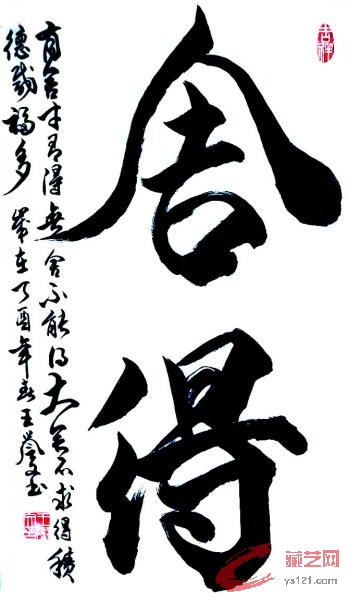 舍得
有舍才有得無舍不能得大舍不求得積
德載福多 歲在丁酉年春王書
吉祥
藏艺网
ys121.com